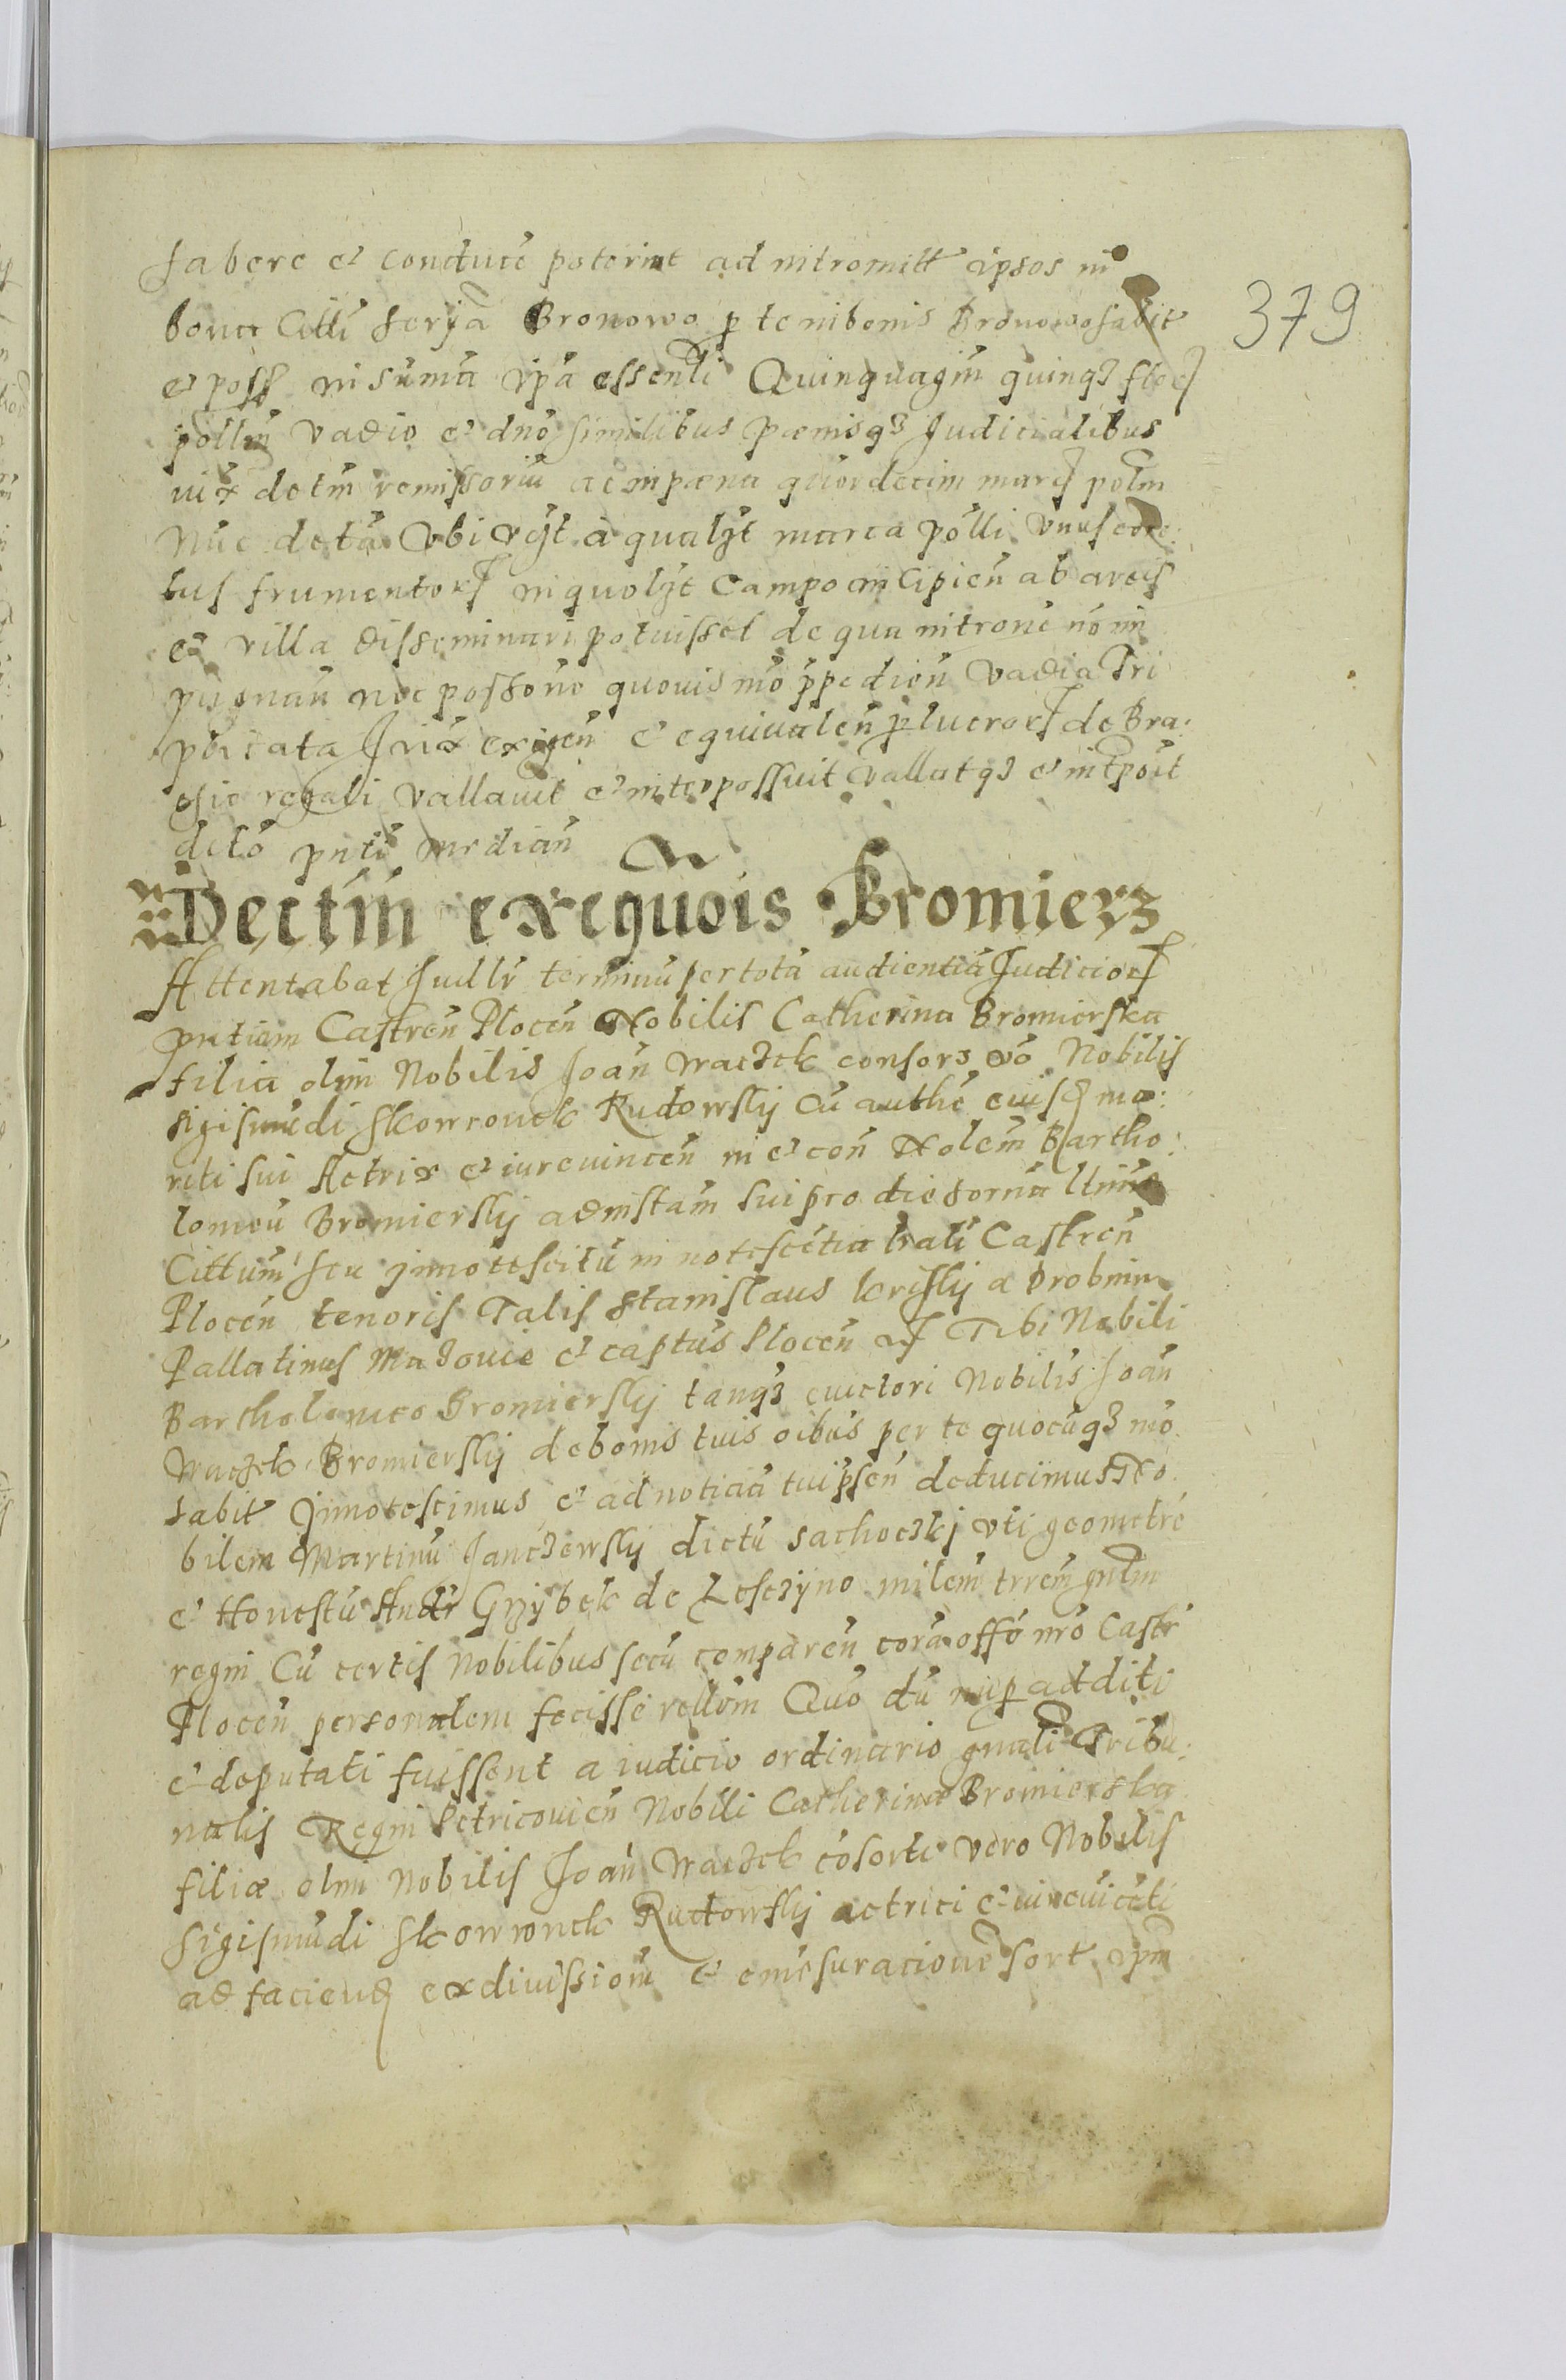 habere et conducē poterint ad intromitt ipsos in
379
bona Citti feryā Bronowo p te in bonis Bronowo habit
et poss in sūma ipa essentli Quinquagīn quinqȝ floꝝ
polln vadio et dno similibus pænisqȝ Judicialibus
iux dctm remissoriū ac in pæna quordecim marꝝ polm
Nūc dcta Ubi vgt a qualꝫt marca polli unus
tus frumentoꝝ in quolꝫt Campo incipien ab areis
et villa disseminari potuisset de qua introne nō im
pugnan nec possone quovis mō ppedien vadia Tri
plicata Jux exigen et equivalen p lucroꝝ de Bra
chio regali vallavit et interpossuit vallatqȝ et intpoit
dcto pnti median
Dectm exeqūois Bromierz
Attentabat Judlr terminū per totā audientiā Judicioꝝ
pntium Castren Plocen Nobilis Catherina Bromierska
filia olim Nobilis Joan Waczek consors vo Nobilis
Sigismūdi Skowronek Rudowsky Cū authē eiusꝫ ma:
riti sui Actrix et iurevincen in et con Nolem Bartho:
lomeū Bromiersky ad instam sui pro die horna
Cittum seu innotescitū in notescētia trali Castren
Plocen tenoris Talis Stanislaus krisky a Drobnin
Pallatinus Mazovie et captus Plocen Tibi Nobili
Bartholomeo Bromiersky tanqȝ evictori Nobilis Joan
Waczek Bromiersky de bonis tuis oibus per te quocūqȝ mō
habit Jnnotescimus et ad noticiā tui psen deducimus No
bilem Martinū Janczewsky dictū Sachoczkj uti geometrē
et Honestū Andr Grzybek de Leszczyno milem trrem gnlm
regni Cū certis Nobilibus secū comparen corā offo nro Castr
Plocen personalem fecisse rellom Quo dū nup additi
et deputati fuissent a iudicio ordinario gnali Tribu:
nalis Regni Petricovien Nobili Catherinæ Bromierska
filiæ olim Nobilis Joan Waczek cōsorti vero Nobilis
Sigismūdi Skowronek Rudowsky actrici et iurevicēti
ad faciendꝫ exdivissiom et emēsuracionē sort ipm